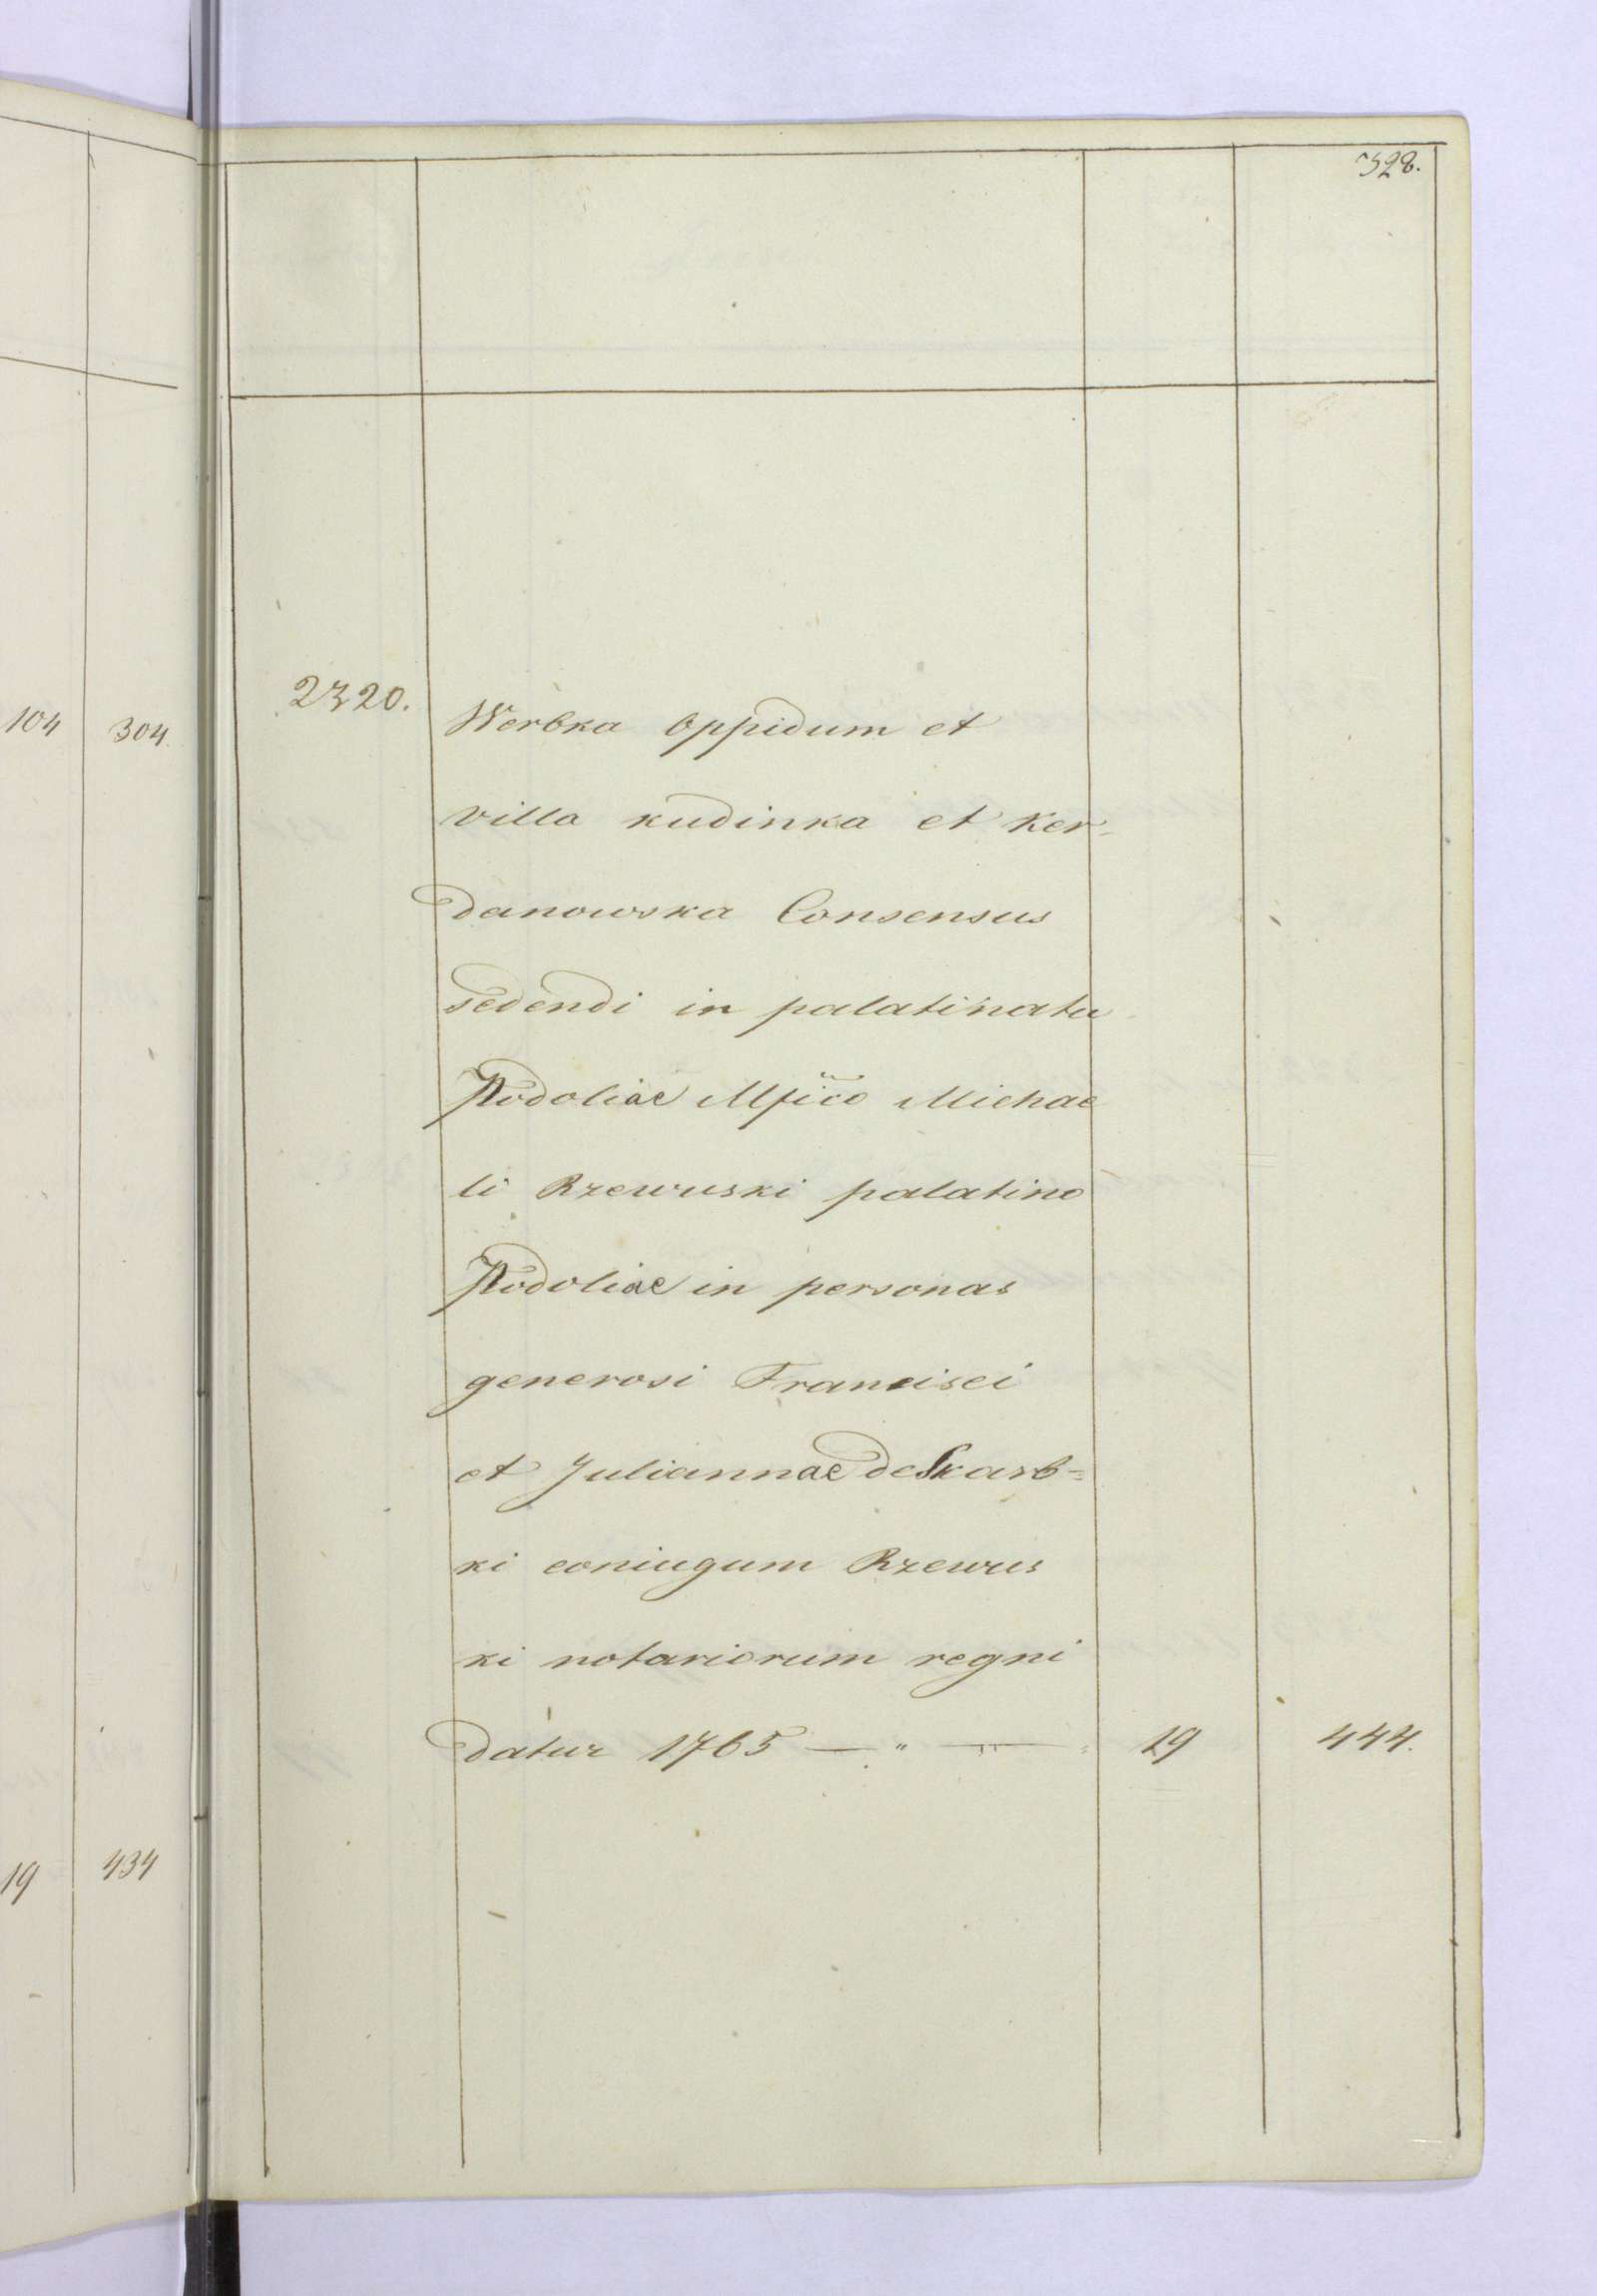 328.
104 304.
2320.
Werbka Oppidum et
villa kudinka et Ker-
danowska Consensus
sedendi in palatinatu
Podoliae Mfico Michae
li Rzewuski palatino
Podoliae in personas
generosi Francisci
et Juliannae de Skarb=
ki coniugum Rzewus
ki notariorum regni
datur 1765 — " — 19 444.
19 434